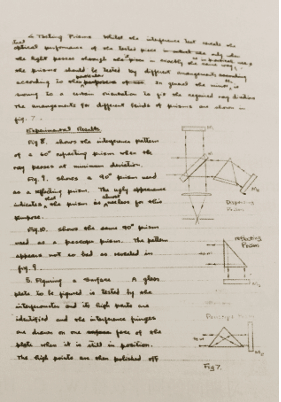 4. Testing Prisms Whilst the interference test reveals the
optical performance of the tested piece only when
the light passes through the prism in exactly the same way,
the prisms should be tested by different arrangements
according to the particular
moving to a certain orientation to fit the required ray direction
The arrangements for different kinds of prisms are shown in
fig. 7.
Experimental Results
Fig 8. shows the interference pattern
of a 60° refracting prism when the
ray passes at minimum deviation.
Fig. 9. Shows a 90° prism used
as a reflecting prism. The ugly appearance
indicates that the prism is almost useless for this
purpose.
Fig.10. shows the same 90° prism
used as a prism. The pattern
appears not so bad as revealed in
fig. 9.
5. Figuring a surface A glass
plate to be figured is tested by the
interferometer and its high parts are
identified and the interference fringes
are drawn on one face of the
plate when it is still in position.
The high points are then polished off
Dispersing
Prism
reflecting
Prism
Fig 7.